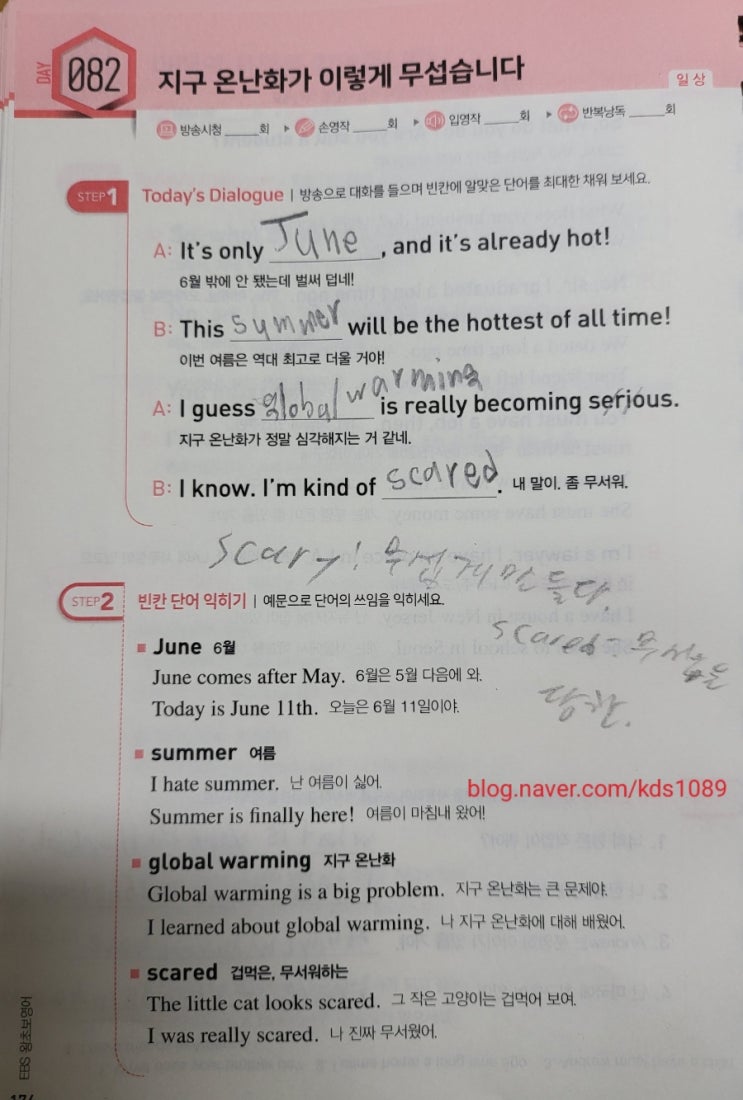 DAY 082 지구 온난화가 이렇게 무섭습니다
일상
방송시청 _____회 ▶ 손영작 _____회 ▶ 입영작 _____회 ▶ 반복낭독 _____회
STEP1 Today's Dialogue | 방송으로 대화를 들으며 빈칸에 알맞은 단어를 최대한 채워 보세요.
A: It's only June, and it's already hot!
6월 밖에 안 됐는데 벌써 덥네!
B: This summer will be the hottest of all time!
이번 여름은 역대 최고로 더울 거야!
A: I guess global warming is really becoming serious.
지구 온난화가 정말 심각해지는 거 같네.
B: I know. I'm kind of scared. 내 말이. 좀 무서워.
scary! 무섭게 만들다.
STEP2 빈칸 단어 익히기 | 예문으로 단어의 쓰임을 익히세요.
scared - 무서움을
당한.
■ June 6월
June comes after May. 6월은 5월 다음에 와.
Today is June 11th. 오늘은 6월 11일이야.
■ summer 여름
I hate summer. 난 여름이 싫어.
blog.naver.com/kds1089
Summer is finally here! 여름이 마침내 왔어!
■ global warming 지구 온난화
Global warming is a big problem. 지구 온난화는 큰 문제야.
I learned about global warming. 나 지구 온난화에 대해 배웠어.
■ scared 겁먹은, 무서워하는
The little cat looks scared. 그 작은 고양이는 겁먹어 보여.
I was really scared. 나 진짜 무서웠어.
EBS 왕초보영어